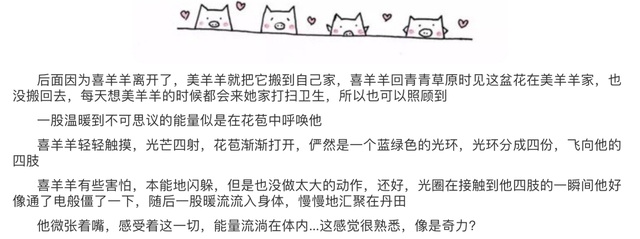 后面因为喜羊羊离开了，美羊羊就把它搬到自己家，喜羊羊回青青草原时见这盆花在美羊羊家，也
没搬回去，每天想美羊羊的时候都会来她家打扫卫生，所以也可以照顾到
一股温暖到不可思议的能量似是在花苞中呼唤他
喜羊羊轻轻触摸，光芒四射，花苞渐渐打开，俨然是一个蓝绿色的光环，光环分成四份，飞向他的
四肢
喜羊羊有些害怕，本能地闪躲，但是也没做太大的动作，还好，光圈在接触到他四肢的一瞬间他好
像通了电般僵了一下，随后一股暖流流入身体，慢慢地汇聚在丹田
他微张着嘴，感受着这一切，能量流淌在体内...这感觉很熟悉，像是奇力?